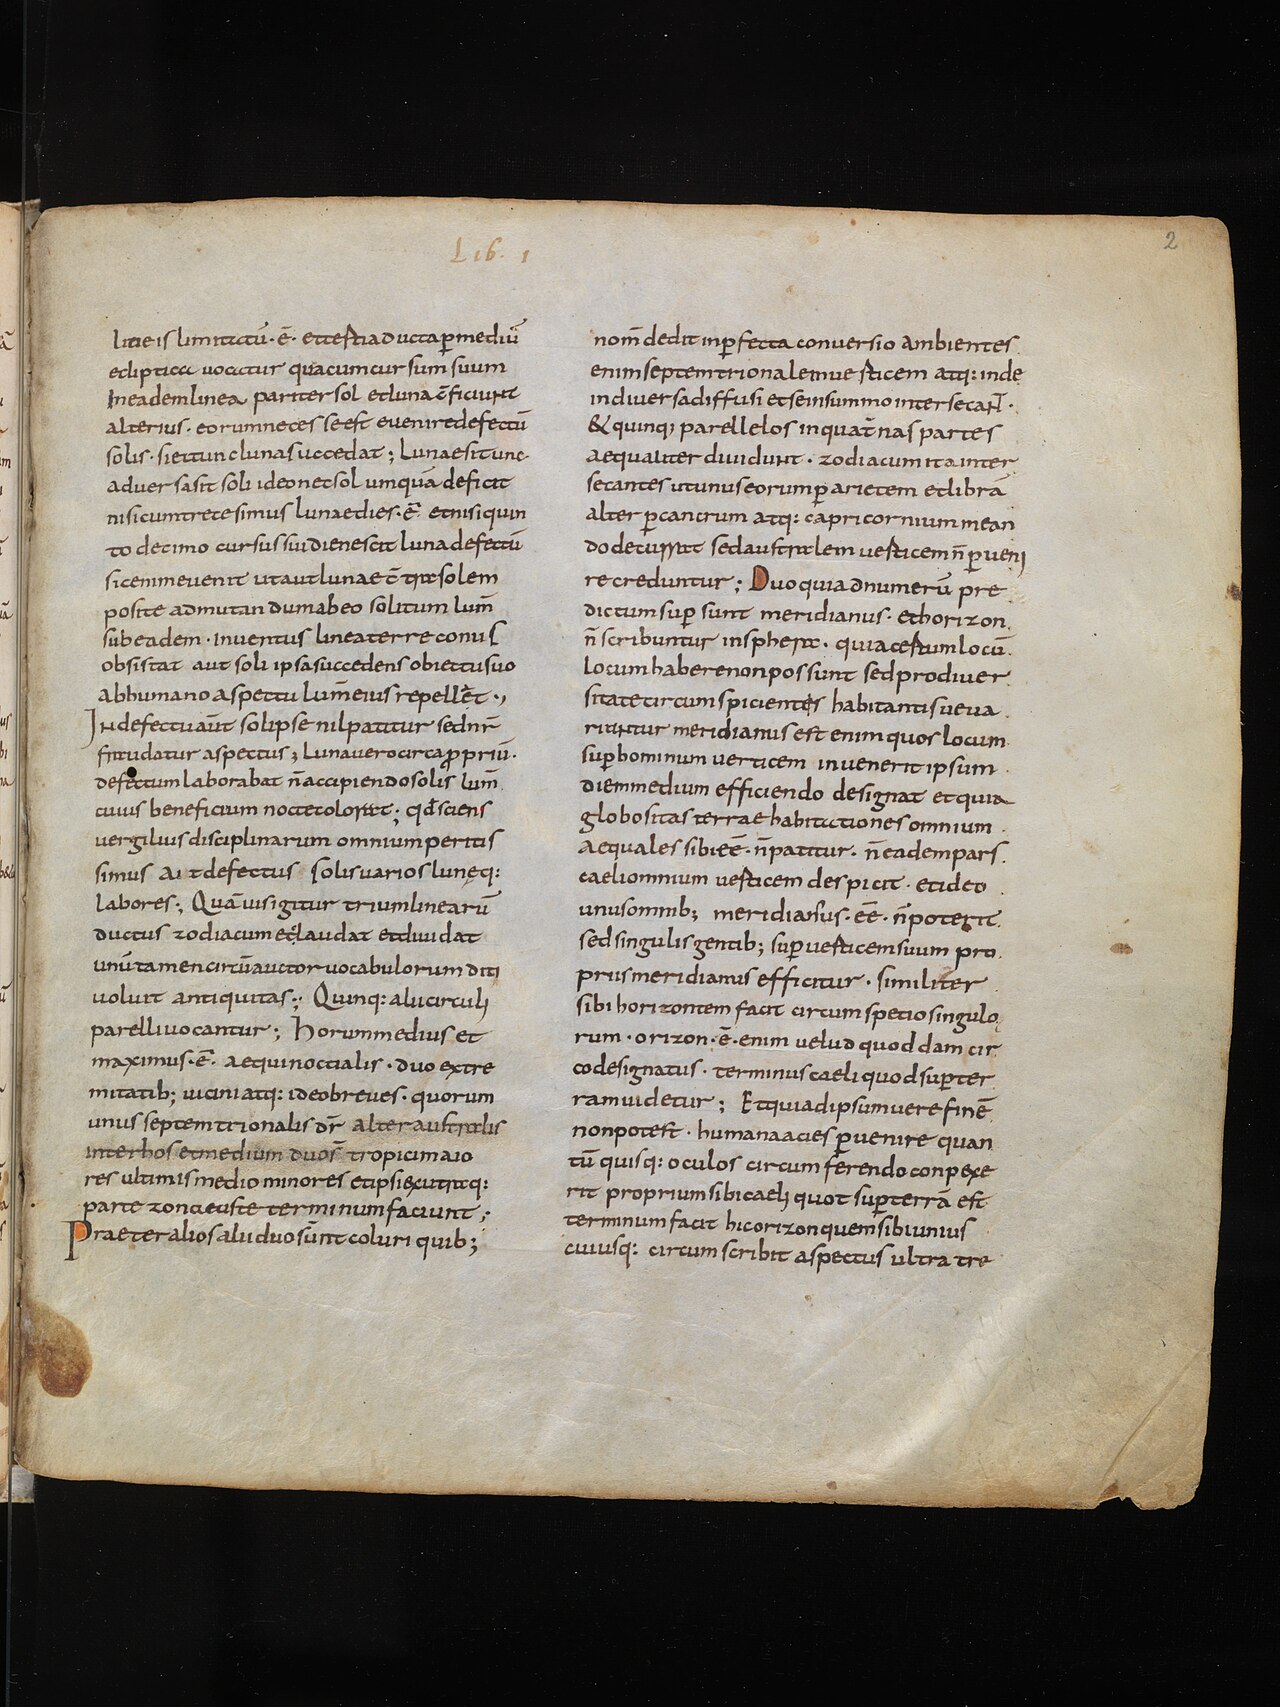 Lib. I
2
litie is limitatū · ē · et tertia ducta p mediū
ecliptica vocatur quia cum cursum suum
In eadem linea pariter sol et luna c̄ficiunt
alterius · eorum necesse est evenire defectū
solis · si ei tunc luna succedat ; Lunae si tunc
adversa sit soli ideo nec sol umquā deficit
nisi cum tricesimus lunae dies · ē · et nisi quin
to decimo cursus sui die nescit luna defectū
sic enim evenit ut aut lunae c̄tra solem
posite ad mutandum ab eo solitum lum̄
sub eadem · inventus linea terre conus
obsistat aut soli ipsa succedens obiectu suo
ab humano aspectu lum̄ eius repellet ·,
In defectu aūt sol ipse nil patitur sed nr̄
fraudatur aspectus ; Luna vero circa p priū ·
defectum laborabat n̄ accipiendo solis lum̄
cuius beneficium nocte colorat ; qđ sciens
vergilius disciplinarum omnium peritis
simus ait defectus solis varios luneq:
labores ·, Quāvis igitur trium linearū
ductus zodiacum et claudat et dividat
unū tamen circū auctor vocabulorum dici
voluit antiquitas ·, Quinq: alii circuli
parelli vocantur ; horum medius et
maximus · ē · aequinoctialis · duo extre
mitatib; vicini atq: ideo breves · quorum
unus septemtrionalis dr̄ alter australis
inter hos et medium duo s̄ tropici maio
res ultimis medio minores et ipsi ex utraq:
parte zonae uste terminum faciunt ;
Praeter alios alii duo sunt coluri quib;
nom̄ dedit inp fecta conversio Ambientes
enim septemtrionalem verticem atq: inde
in diversa diffusi et se in summo intersecant ·
& quinq; parellelos in quat̄nas partes
aequaliter dividunt · zodiacum ita inter
secantes ut unus eorum p arietem et librā
alter p cancrum atq: capricornium mean
do decurrat sed australem verticem n̄ p veni
re creduntur ; Duo qui ad numerū pre
dictum sup sunt meridianus · et horizon
n̄ scribuntur in sphera · quia certum locū
locum habere non possunt sed pro diver
sitate circumspicientis habitantisve va
riantur meridianus est enim quos locum
sup hominum verticem invenerit ipsum
diem medium efficiendo designat et quia
globositas terrae habitationes omnium
aequales sibi eē · n̄ patitur · n̄ eadem pars
caeli omnium verticem despicit · et ideo
unus omnib; meridianus · eē · n̄ poterit
sed singulis gentib; sup verticem suum pro
prius meridianus efficitur · similiter
sibi horizontem facit circumspectio singulo
rum · orizon · ē · enim velud quoddam cir
co designatus · terminus caeli quod sup ter
ram videtur ; Et quia ad ipsum vere finē
non potest · humana acies p venire quan
tū quisq: oculos circumferendo conpexe
rit proprium sibi caeli quot sup terrā est
terminum facit hic orizon quem sibi unius
cuiusq: circumscribit aspectus ultra tre